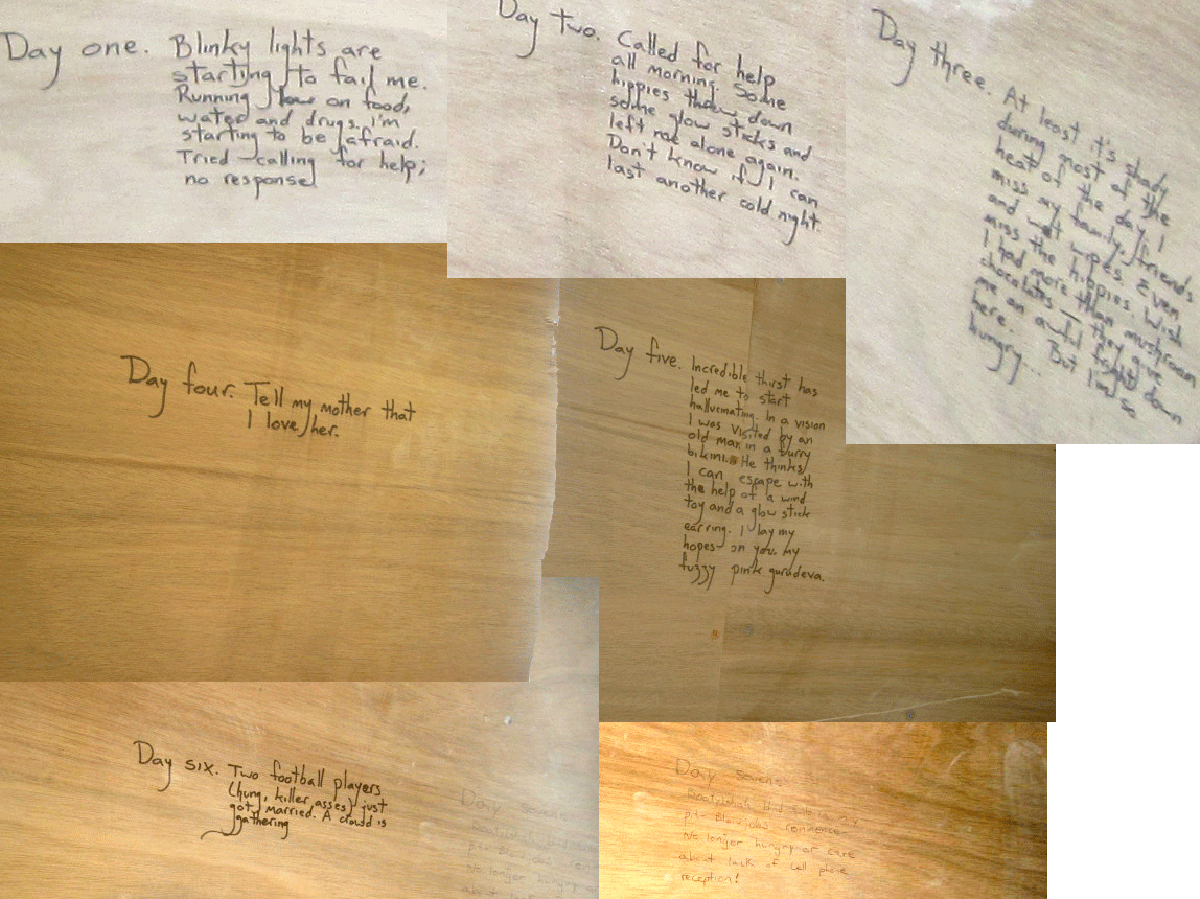 Day one. Blinky lights are
starting to fail me.
Running low on food,
water and drugs. I'm
starting to be afraid.
Tried calling for help;
no response
Day two. Called for help
all morning. Some
hippies threw down
some glow sticks and
left me alone again.
Don't know if I can
last another cold night.
Day three. At least it's shady
during most of the
heat of the day. I
miss my family, friends
and wet wipes. Even
miss the hippies. Wish
I had more than mushroom
chocolates - they give
me an awful fright down
here. But I'm so
hungry...
Day four. Tell my mother that
I love her.
Day five. Incredible thirst has
led me to start
hallucinating. In a vision
I was visited by an
old man in a furry
bikini. He thinks
I can escape with
the help of a wind
toy and a glow stick
earring. I lay my
hopes on you, my
fuzzy pink gurudeva.
Day six. Two football players
(hung, killer asses) just
got married. A crowd is
gathering
Day
No longer hungry
about
Day seven.
pit. Blowjobs commence
No longer hungry or care
about lack of cell phone
reception!